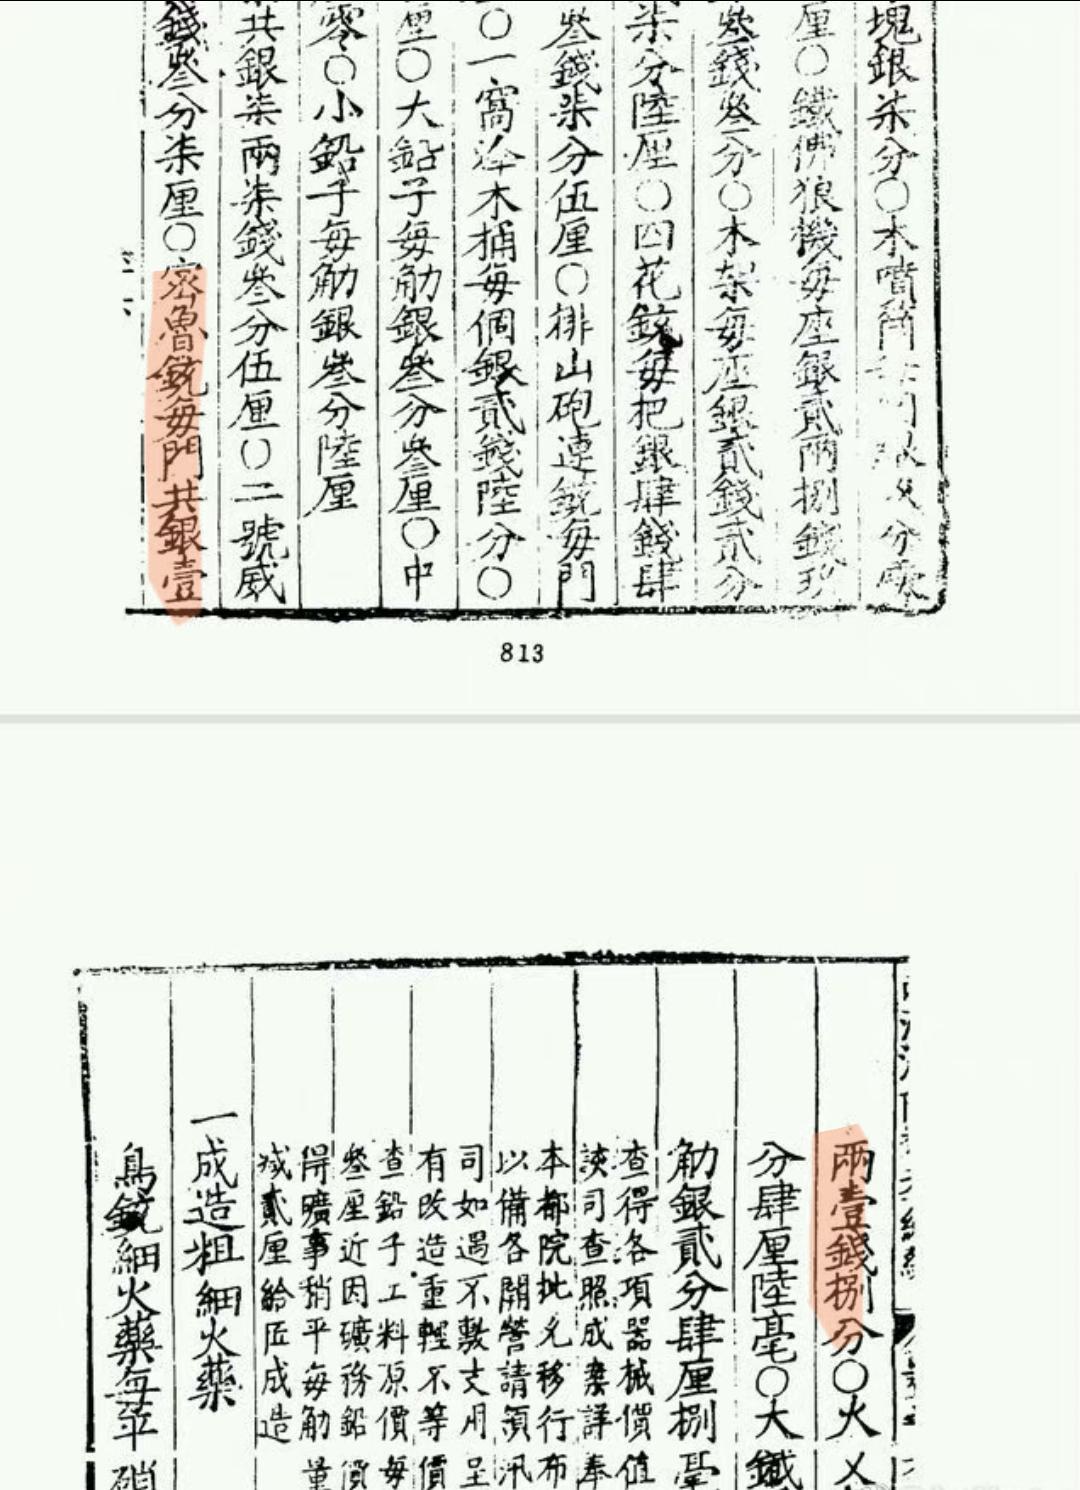 塊銀柒分○木噴筒
厘○鐵佛狼機每座銀貳兩捌錢玖
叁錢叁分○木架每座銀貳錢貳分
柒分陸厘○四花銃每把銀肆錢肆
叁錢柒分伍厘○排山砲連銃每門
○一窩 木桶每個銀貳錢陸分○
厘○大鉛子每觔銀叁分叁厘○中
零○小鉛子每觔銀叁分陸厘
共銀柒兩柒錢叁分伍厘○二號威
錢叁分柒厘○密魯銃每門共銀壹
813
兩壹錢捌分○火
分肆厘陸毫○大鐵
觔銀貳分肆厘捌毫
查得各項器械價值
該司查照成 詳奉
本都院批允移行布
以備各開營請領汛
司如過不敷支用呈
有改造重輕不等價
查鉛子工料原價每
叁厘近因礦務鉛價
得曠事稍平每觔量
減貳厘給匠成造
一成造粗細火藥
鳥銃細火藥每 硝